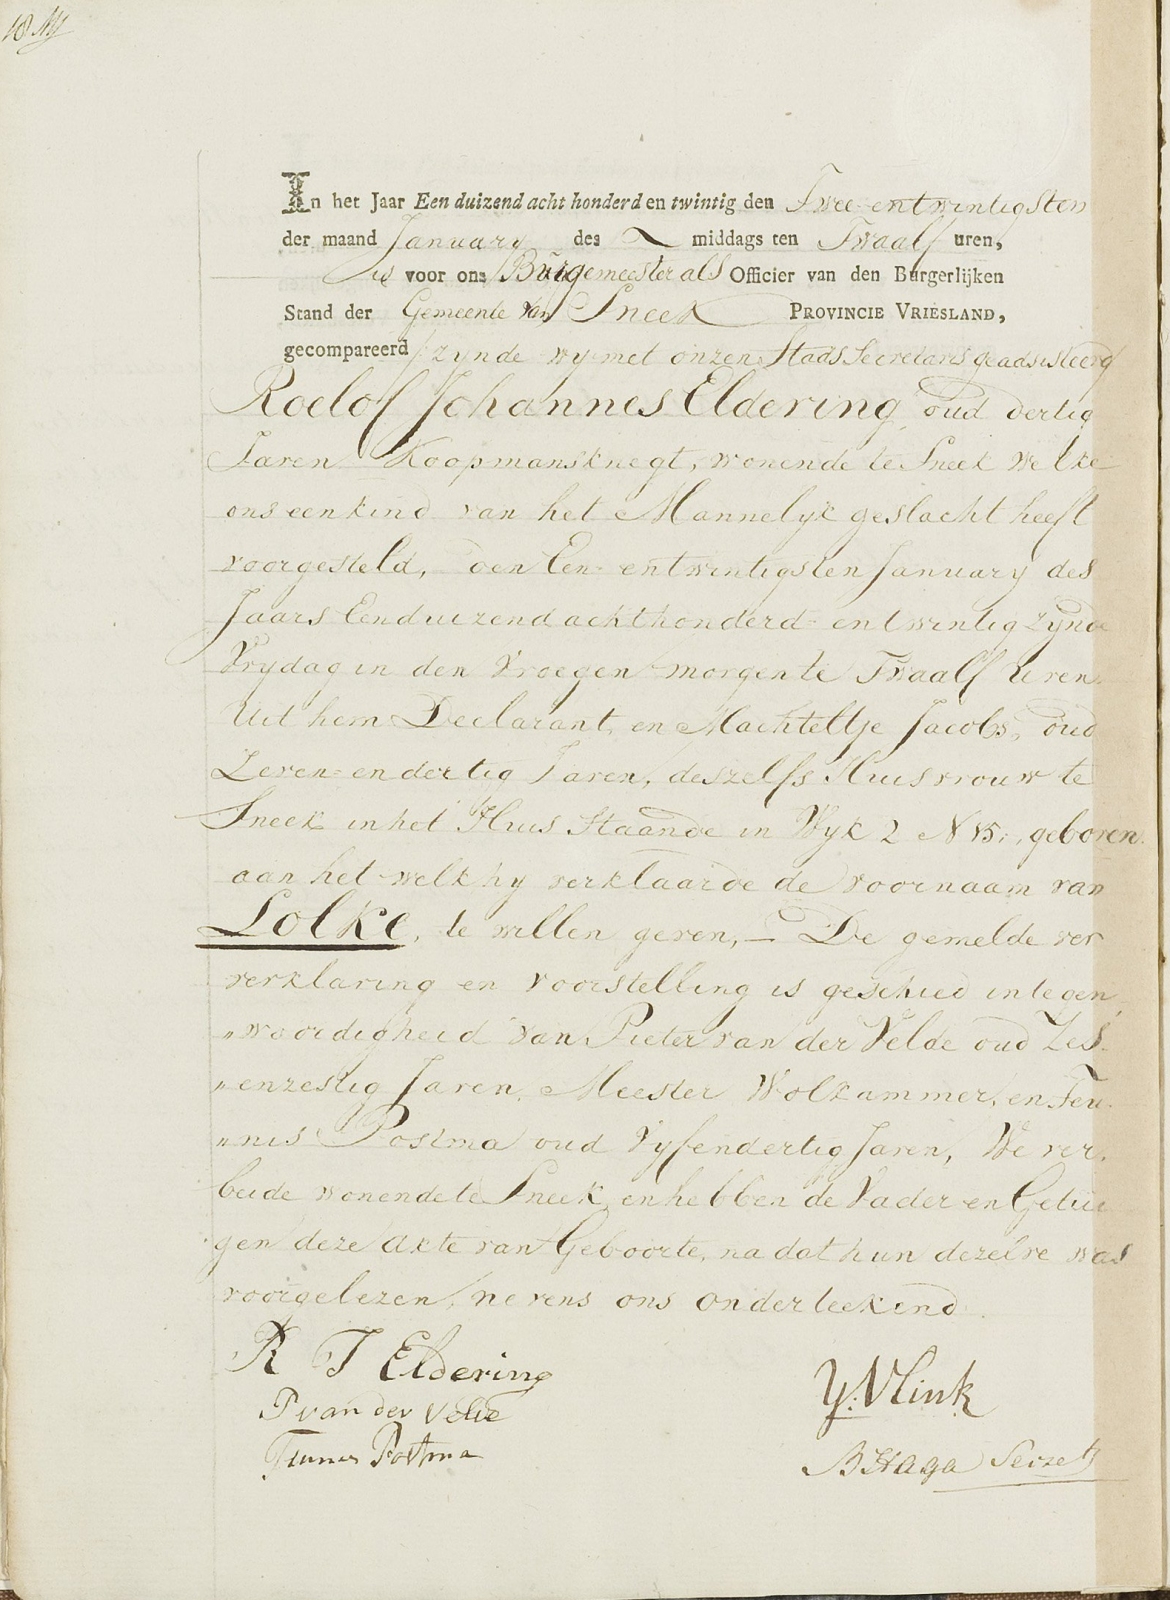 In het Jaar Een duizend acht honderd en twintig den Twee-entwintigsten
der maand January des middags ten Twaalf uren,
is voor ons Burgemeester als Officier van den Burgerlijken
Stand der Gemeente van Sneek PROVINCIE VRIESLAND,
gecompareerd zynde wy met onzen Stads Secretaris geadsisteerd
Roelof Johannes Eldering, oud dertig
Jaren Koopmansknegt, wonende te Sneek Welke
ons een kind van het Mannelyk geslacht heeft
voorgesteld, den Een-entwintigsten January des
Jaars Eenduizend achthonderd-entwintig zynde
Vrydag in den Vroegen morgen te Twaalf Uren
Uit hem Declarant, en Machteltje Jacobs, oud
Zeven-en dertig Jaren, deszelfs Huisvrouw te
Sneek in het Huis Staande in Wyk 2 N 15., geboren
aan het welk hy verklaarde de voornaam van
Lolke, te willen geven, — De gemelde ver
verklaring en Voorstelling is geschied in tegen
„woordigheid van Pieter van der Velde oud Zes-
„enzestig Jaren, Meester Wolkammer, en Teu-
„nis Postma oud Vyfendertig Jaren, We ver.
beide wonende te Sneek, en hebben de Vader en Getui
gen deze Akte van Geboorte, na dat hun dezelve was
voorgelezen, nevens ons onderteekend
R J Eldering
P van der Velde
Teunis Postma
Y: Vlink
B Haga Secret